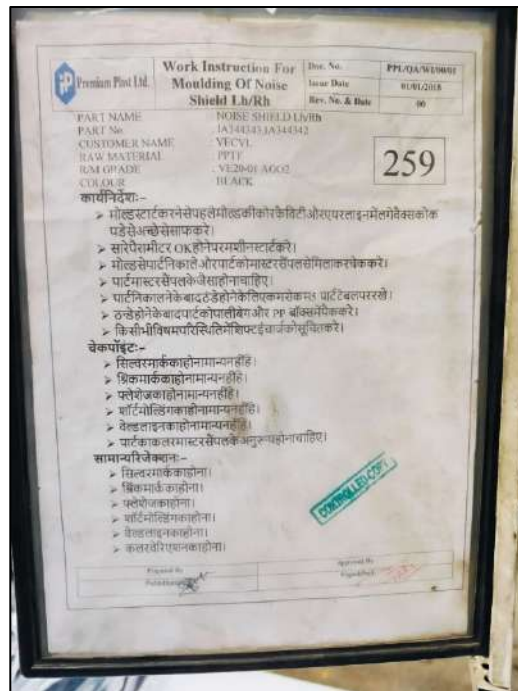 Premium Plast Ltd.
Work Instruction For
Moulding Of Noise
Shield Lh/Rh
Doc. No.
PPL/QA/WI/00/01
Issue Date
01/01/2018
Rev. No. & Date
00
PART NAME : NOISE SHIELD Lh/Rh
PART No : IA344343,IA344342
CUSTOMER NAME : VECVL
RAW MATERIAL : PPTF
R/M GRADE : VE20-01 AGO2
COLOUR : BLACK
259
कार्यनिर्देशः-
➢ मोल्डस्टार्टकरनेसेपहलेमोल्डकीकोरकैविटीऔरएयरलाइनमेंलगेवैक्सकोक
पडेसेअच्छेसेसाफकरे।
➢ सारेपैरामीटर OKहोनेपरमशीनस्टार्टकरे।
➢ मोल्डसेपार्टनिकालेऔरपार्टकोमास्टरसैंपलसेमिलाकरचेककरे।
➢ पार्टमास्टरसैंपलकेजैसाहोनाचाहिए।
➢ पार्टनिकालनेकेबादठन्डेहोनेकेलिएकमसेकम3 पार्टटेबलपररखे।
➢ ठन्डेहोनेकेबादपार्टकोपालीबेगऔर PP बॉक्समेंपैककरे।
➢ किसीभीविषमपरिस्थितिमेंशिफ्टईंचार्जकोसूचितकरे।
चेकपॉइंटः-
➢ सिल्वरमार्ककाहोनामान्यनहींहै।
➢ श्रिंकमार्ककाहोनामान्यनहींहै।
➢ फ्लेशेजकाहोनामान्यनहींहै।
➢ शॉर्टमोल्डिंगकाहोनामान्यनहींहै।
➢ वेल्डलाइनकाहोनामान्यनहींहै।
➢ पार्टकाकलरमास्टरसैंपलकेअनुरूपहोनाचाहिए।
सामान्यरिजेक्शनः-
➢ सिल्वरमार्ककाहोना।
➢ श्रिंकमार्ककाहोना।
➢ फ्लेशेजकाहोना।
➢ शॉर्टमोल्डिंगकाहोना।
➢ वेल्डलाइनकाहोना।
➢ कलरवेरिएशनकाहोना।
CONTROLLED COPY
Prepared By
Approved By